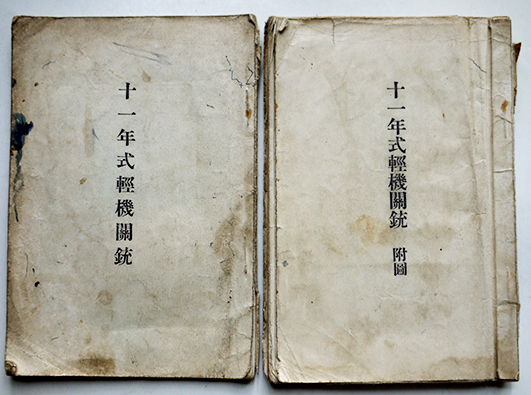 十一年式輕機關銃
十一年式輕機關銃 附圖